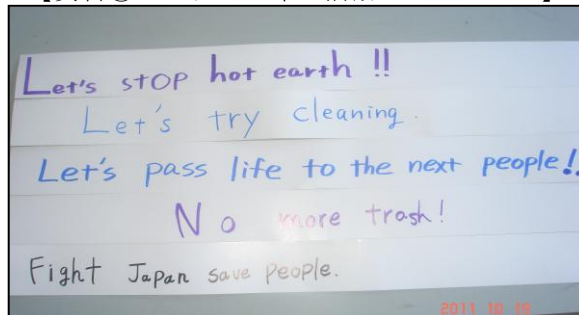 Let's STOP hot earth !!
Let's try cleaning.
Let's pass life to the next people!!
No more trash!
Fight Japan save people.
2011 10 19